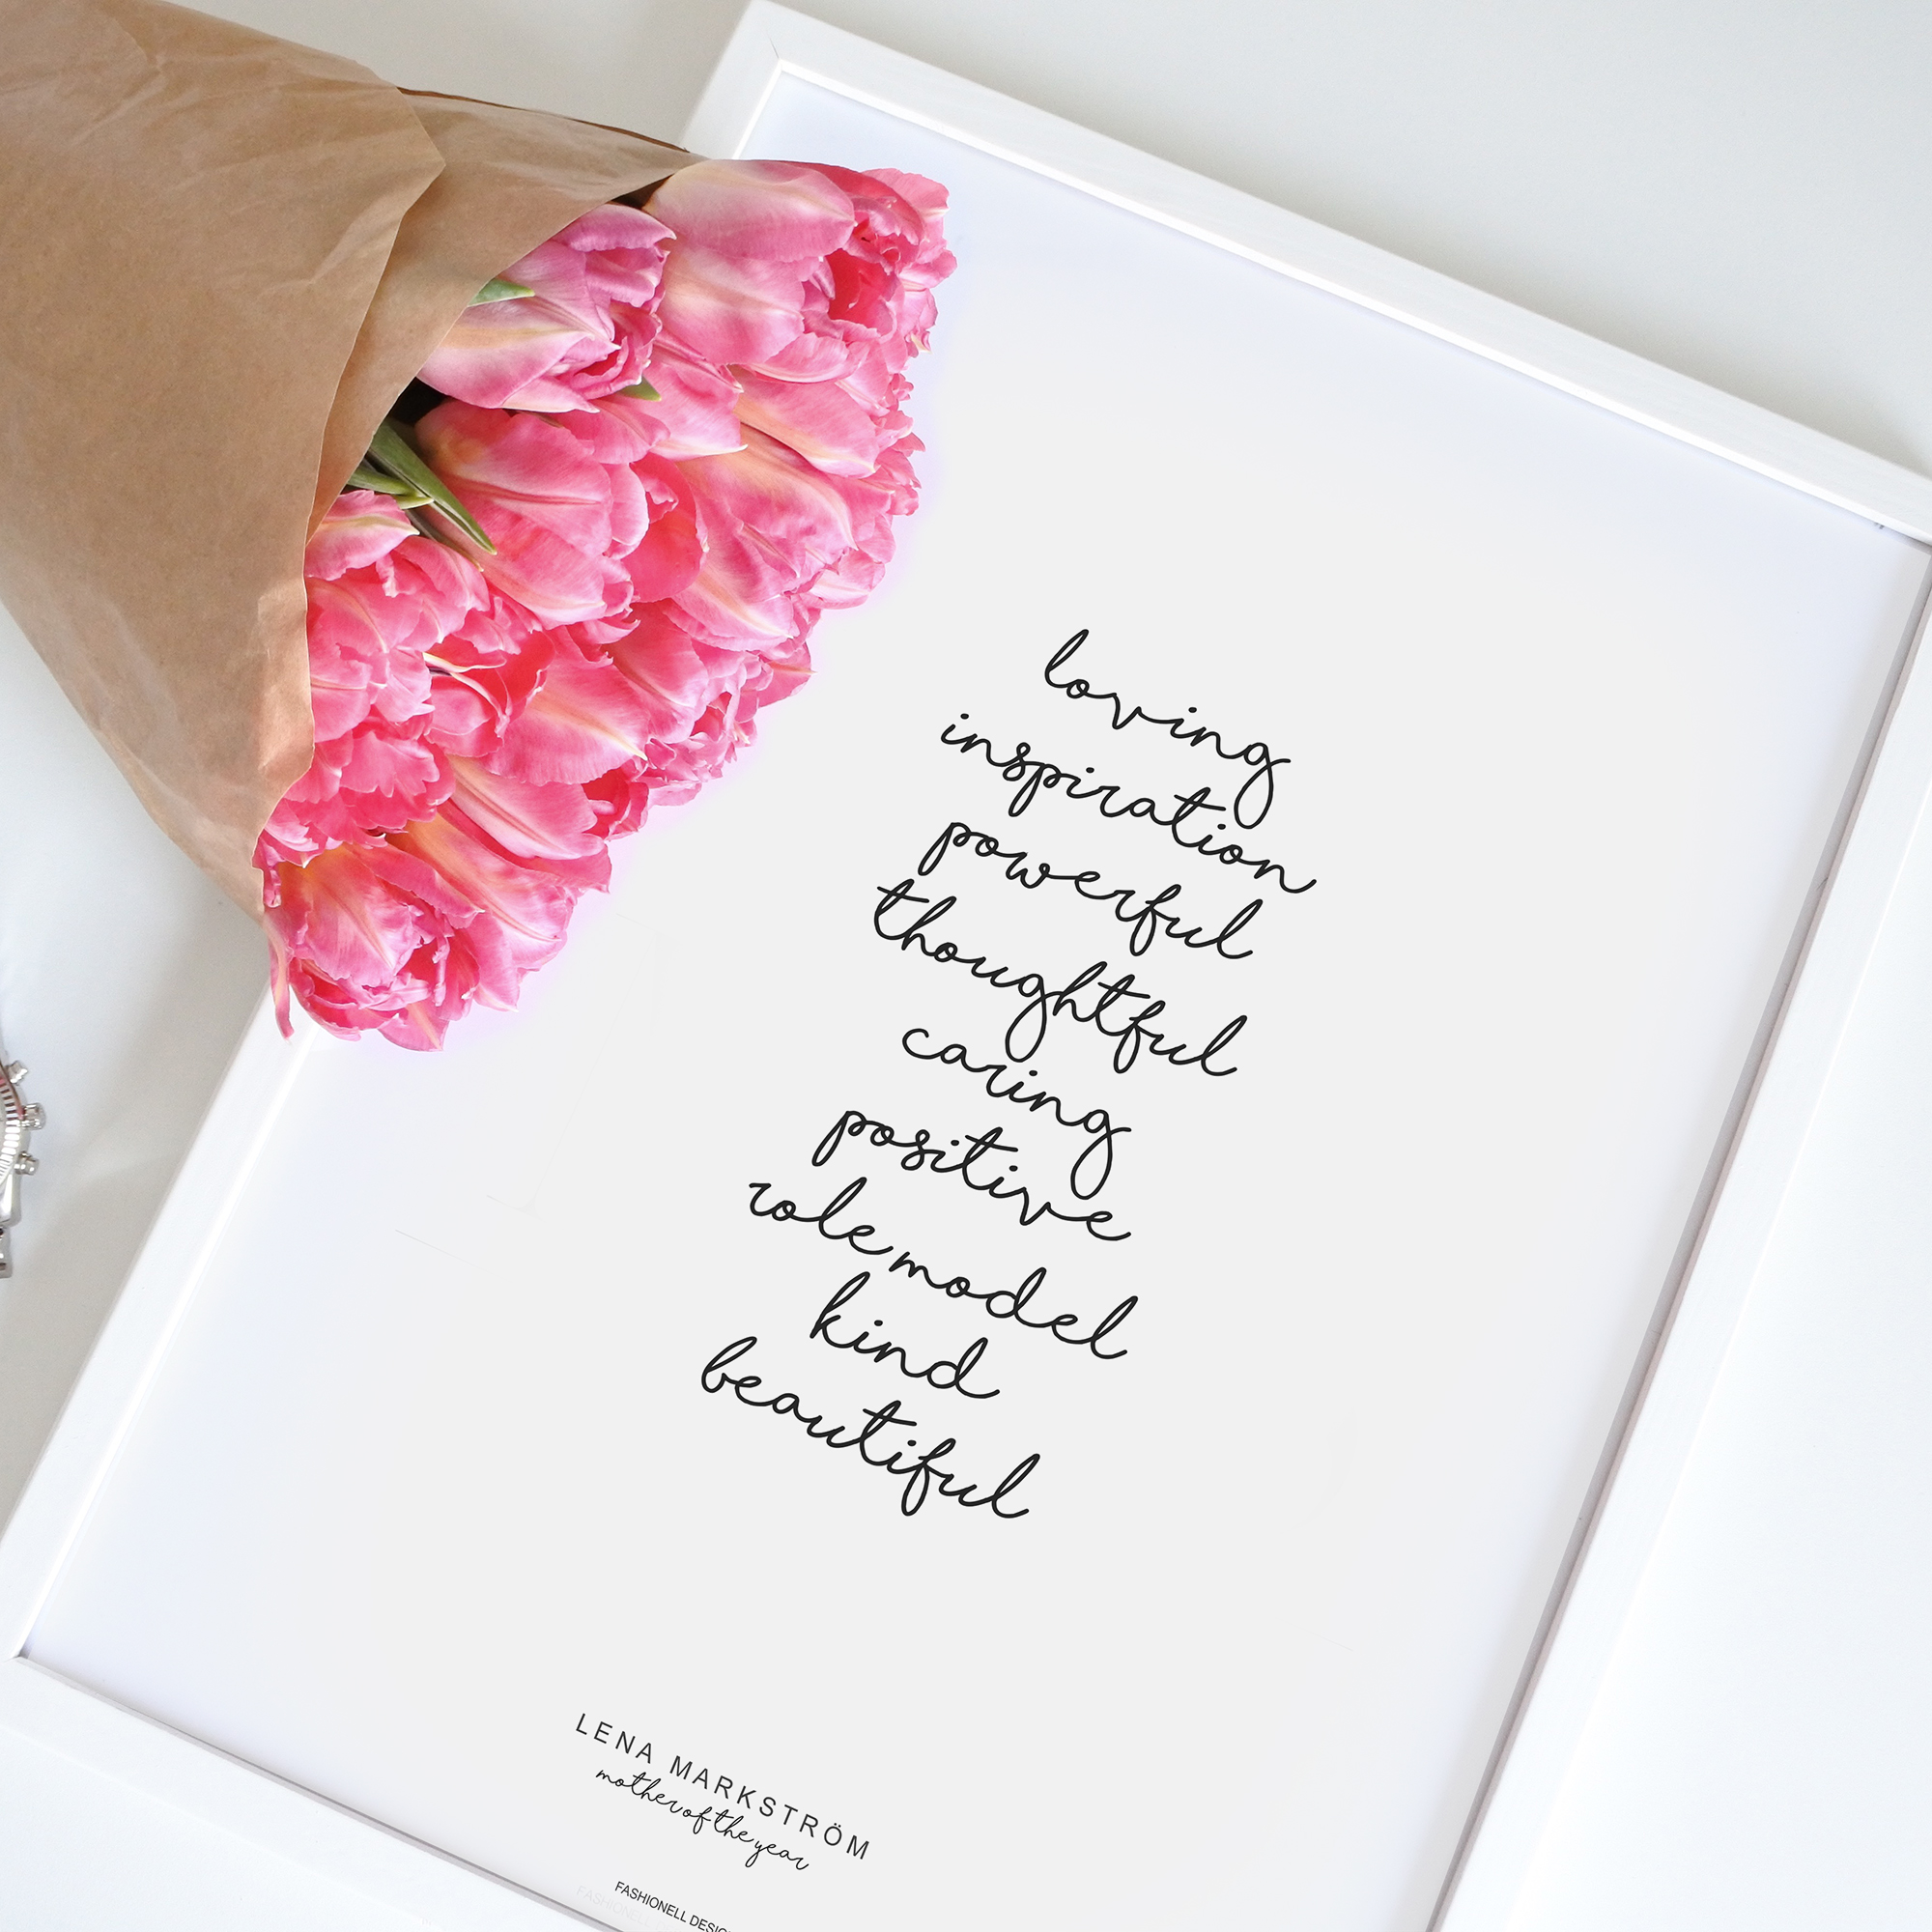 loving
inspiration
powerful
thoughtful
caring
positive
role model
kind
beautiful
LENA MARKSTRÖM
mother of the year
FASHIONELL